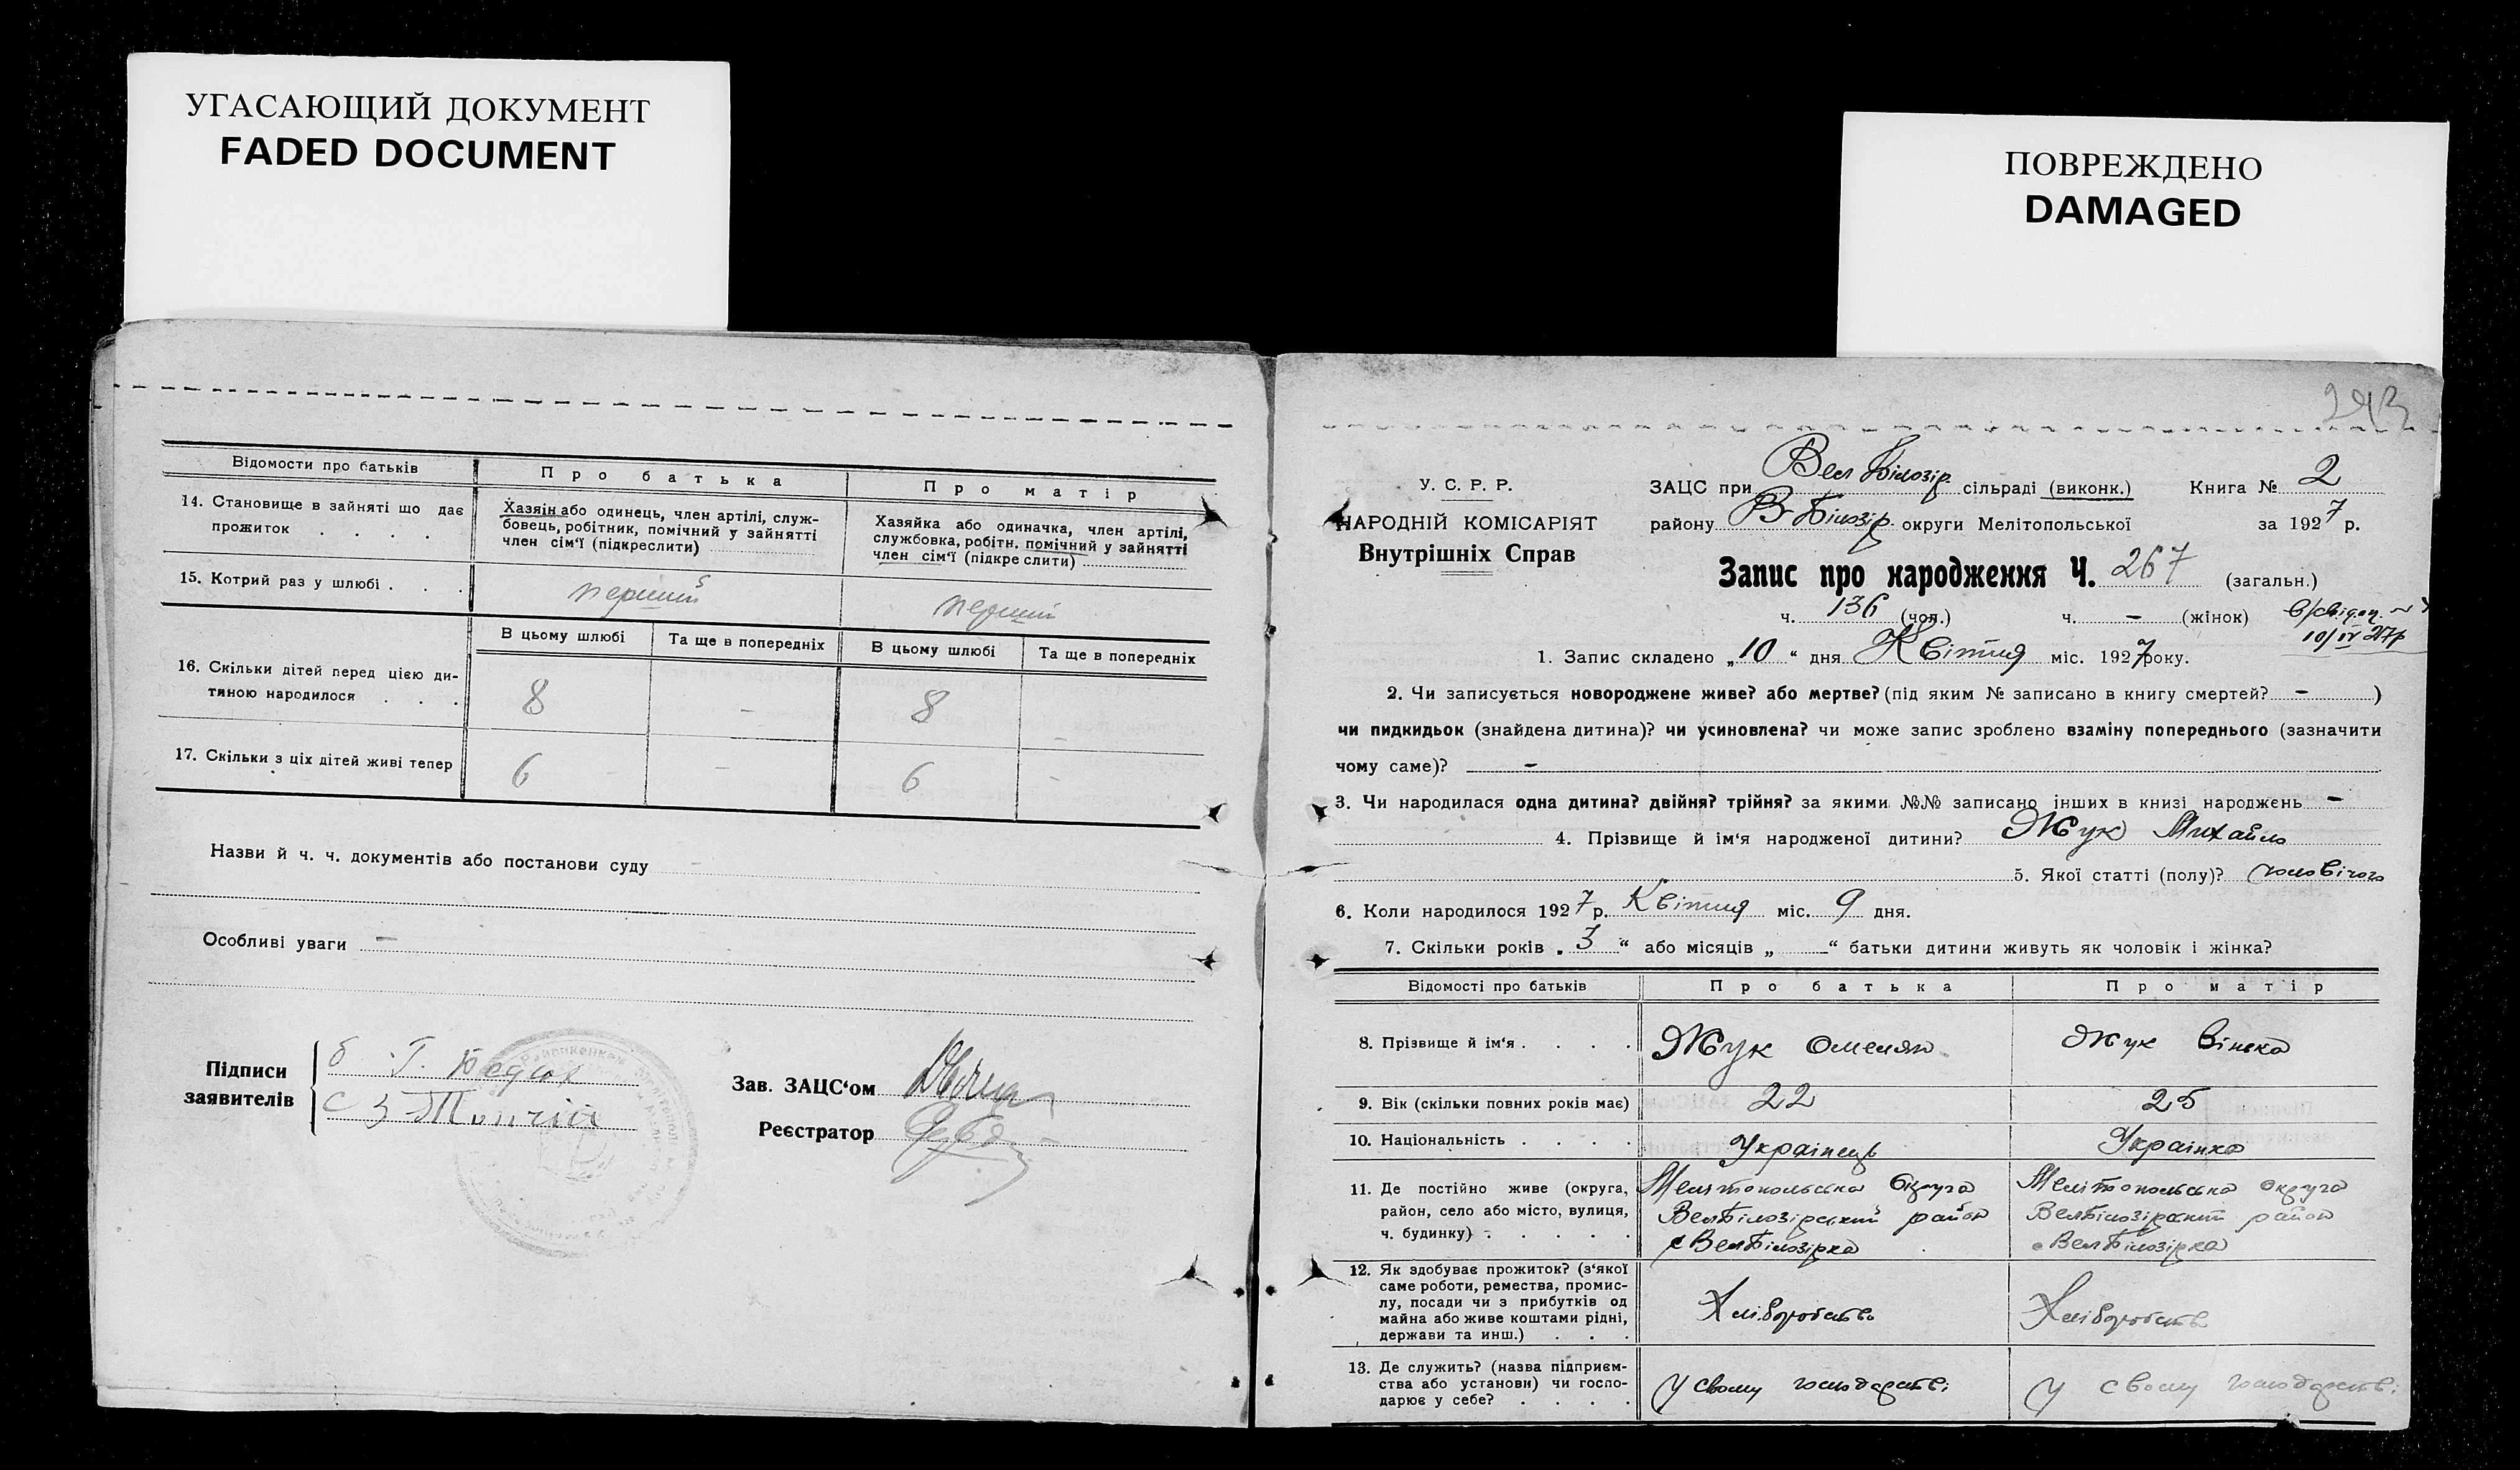 УГАСАЮЩИЙ ДОКУМЕНТ
FADED DOCUMENT
ПОВРЕЖДЕНО
DAMAGED
Відомости про батьків
Про батька
Про матір
14. Становище в зайняті що дає
прожиток . . . .
Хазяін або одинець, член артілі, служ-
бовець, робітник, помічний у зайнятті
член сім'ї (підкреслити)
Хазяйка або одиначка, член артілі,
службовка, робітн. помічний у зайнятті
член сім'ї (підкреслити)
15. Котрий раз у шлюбі . . .
перший
перший
В цьому шлюбі
Та ще в попередніх
В цьому шлюбі
Та ще в попередніх
16. Скільки дітей перед цією ди-
тяною народилося . . .
8 - 8 -
17. Скільки з ціх дітей живі тепер
6 - 6 -
Назви й ч. ч. документів або постанови суду
Особливі уваги —
Підписи
заявителів
Зав. ЗАЦС'ом
Реєстратор
293
У. С. Р. Р.
НАРОДНІЙ КОМІСАРІЯТ
Внутрішніх Справ
ЗАЦС при Вел Білозір. сільраді (виконк.) Книга № 2
району В-Білозір. округи Мелітопольської за 1927 р.
Запис про народження Ч. 267 (загальн.)
ч. 136 (чол.) ч. — (жінок)
10/IV 27р
1. Запис складено „10“ дня Квітня міс. 1927 року.
2. Чи записується новороджене живе? або мертве? (під яким № записано в книгу смертей? — )
чи пидкидьок (знайдена дитина)? чи усиновлена? чи може запис зроблено взаміну попереднього (зазначити
чому саме)? —
3. Чи народилася одна дитина? двійня? трійня? за якими №№ записано інших в книзі народжень —
4. Прізвище й ім'я народженої дитини? Жук Михайло
5. Якої статті (полу)? чоловічого
6. Коли народилося 1927 р. Квітня міс. 9 дня.
7. Скільки років „3“ або місяців „ “ батьки дитини живуть як чоловік і жінка?
Відомості про батьків
Про батька
Про матір
8. Прізвище й ім'я . . . .
Жук Омелян
Жук
9. Вік (скільки повних років має)
22
25
10. Національність . . . .
Українець
Українка
11. Де постійно живе (округа,
район, село або місто, вулиця,
ч. будинку) . . . . .
Мелітопольська округа
ВелБілозірський район
с ВелБілозірка
Мелітопольська округа
ВелБілозірський район
с ВелБілозірка
12. Як здобуває прожиток? (з'якої
саме роботи, ремества, промис-
лу, посади чи з прибутків од
майна або живе коштами рідні,
держави та инш.) . . .
Хліборобство
Хліборобство
13. Де служить? (назва підприєм-
ства або установи) чи госпо-
дарює у себе? . . . .
у свому господарстві
у свому господарстві